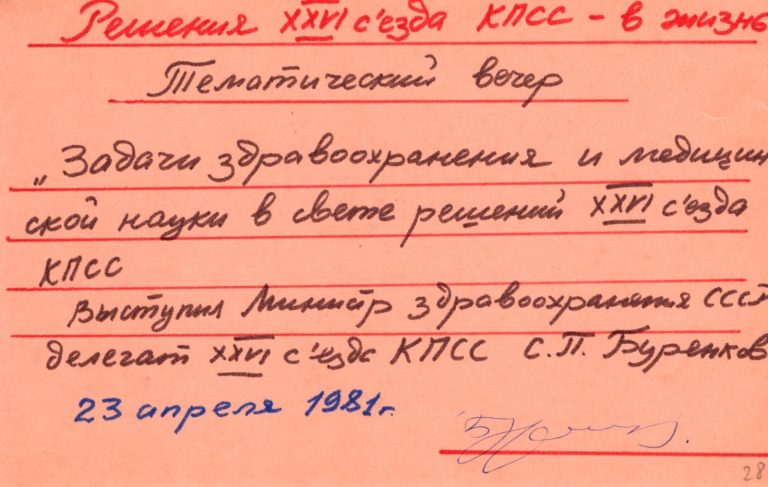 Решения XXVI с'езда КПСС - в жизнь
Тематический вечер
„Задачи здравоохранения и медицин
ской науки в свете решений XXVI с'езда
КПСС
Выступил Министр здравоохранения СССР
делегат XXVI с'езда КПСС С.П. Буренков
23 апреля 1981г.
28